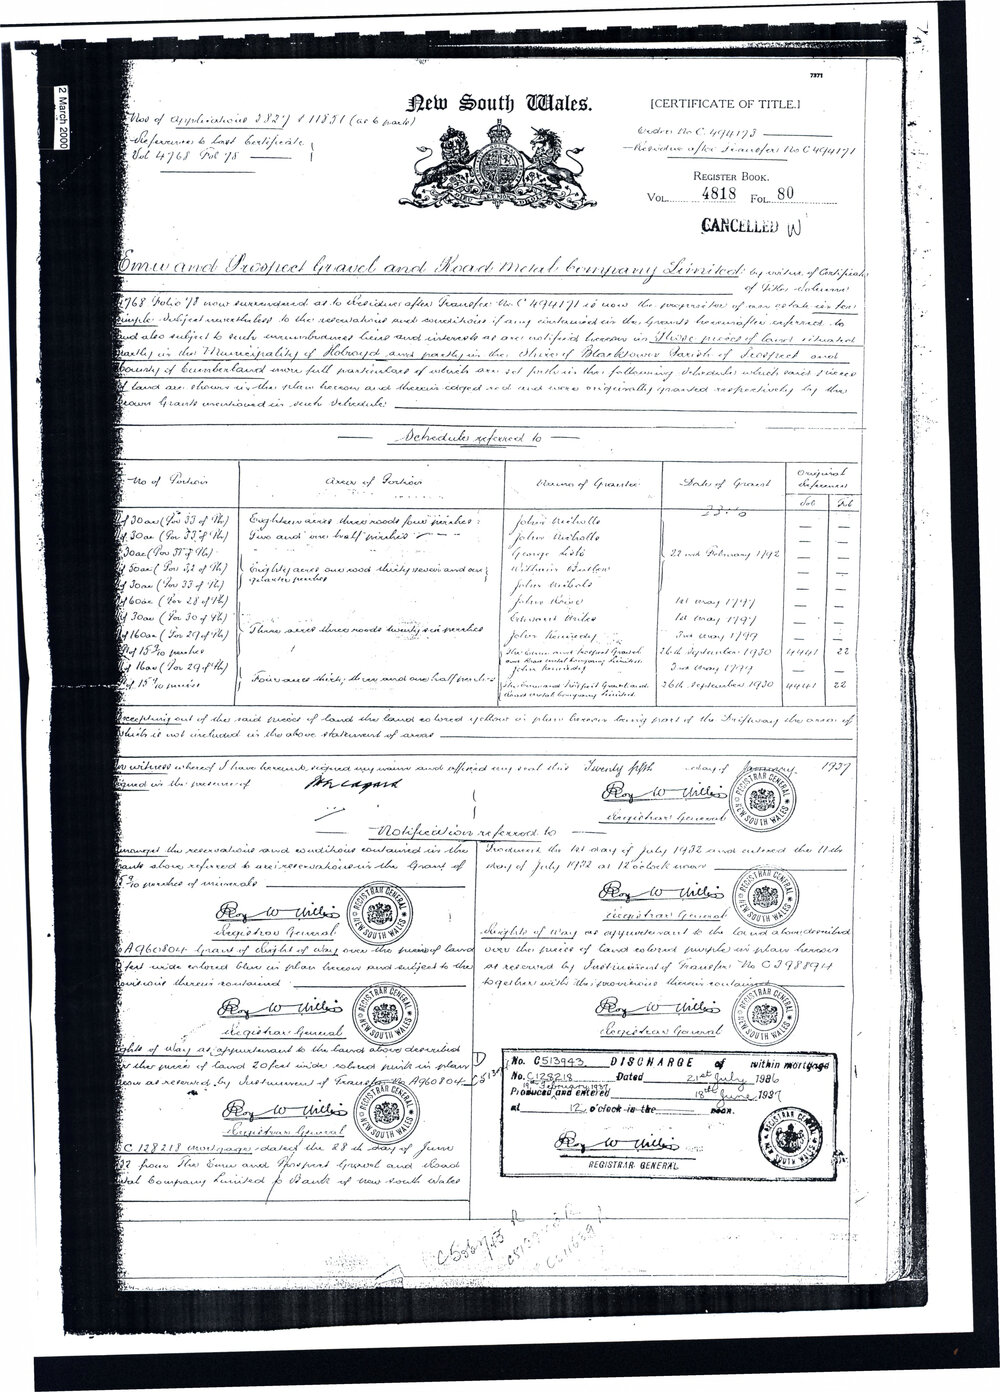 7371
2 March 2000
New South Wales.
[CERTIFICATE OF TITLE.]
Nos of Applications 3827 & 11851 (as to parts)
Reference to Last Certificate
Vol 4768 Fol 78
Order No C 494173
Residue after Transfer No C 494171
REGISTER BOOK.
VOL. 4818 FOL. 80
CANCELLED
Emu and Prospect Gravel and Road Metal Company Limited, by virtue of Certificate
of Title Volume
4768 Folio 78 now surrendered as to Residue after Transfer No C 494171 is now the proprietor of an estate in fee
simple subject nevertheless to the reservations and conditions if any contained in the Grants hereinafter referred to
and also subject to such incumbrances liens and interests as are notified hereon in Those pieces of land situated
partly in the Municipality of Holroyd and partly in the Shire of Blacktown Parish of Prospect and
County of Cumberland more full particulars of which are set forth in the following Schedule which said pieces
of land are shown in the plan hereon and therein edged red and were originally granted respectively by the
Crown Grants mentioned in such Schedule.
Schedule referred to
No of Portion
Area of Portion
Name of Grantee
Date of Grant
Original References
Vol
Fol
of 30ac (Por 33 of Ph)
Eighteen acres three roods four perches
John Nicholls
of 30ac (Por 33 of Ph)
Two and one half perches
John Nicholls
30ac (Por 31 of Ph)
George Lisle
22nd February 1792
of 50ac (Por 32 of Ph)
Eighty acres one road thirty seven and one
quarter perches
William Butler
of 30ac (Por 33 of Ph)
John Nichols
of 60ac (Por 28 of Ph)
1st May 1797
of 30ac (Por 30 of Ph)
Edward
1st May 1797
of 160ac (Por 29 of Ph)
Three acres three roods twenty six perches
John Kennedy
3rd May 1799
of 15 9/10 perches
The Emu and Prospect Gravel
and Road Metal Company Limited
26th September 1930
4441
22
of 160ac (Por 29 of Ph)
Four acres thirty three and one half perches
John Kennedy
3rd May 1799
of 15 9/10 perches
The Emu and Prospect Gravel and
Road Metal Company Limited
26th September 1930
4441
22
Excepting out of the said pieces of land the land colored yellow in plan hereon being part of the Driftway the area of
which is not included in the above statement of areas
In witness whereof I have hereunto signed my name and affixed my seal this Twenty fifth day of January, 1937
Signed in the presence of
Roy W Willis
Registrar General
REGISTRAR GENERAL NEW SOUTH WALES
Notification referred to
Amongst the reservations and conditions contained in the
Grants above referred to are reservations in the Grant of
15 9/10 perches of minerals
Roy W Willis
Registrar General
REGISTRAR GENERAL NEW SOUTH WALES
No A960804 Grant of Right of Way over the piece of land
feet wide colored blue in plan hereon and subject to the
provisions therein contained
Roy W Willis
Registrar General
REGISTRAR GENERAL NEW SOUTH WALES
Rights of Way as appurtenant to the land above described
over the piece of land 20 feet wide colored pink in plan
hereon as reserved by Instrument of Transfer No A960804
Roy W Willis
Registrar General
REGISTRAR GENERAL NEW SOUTH WALES
No C 128218 mortgage dated the 28th day of June
1932 from The Emu and Prospect Gravel and Road
Metal Company Limited to Bank of New South Wales
Produced the 1st day of July 1932 and entered the 11th
day of July 1932 at 12 o'clock noon
Roy W Willis
Registrar General
REGISTRAR GENERAL NEW SOUTH WALES
Rights of Way as appurtenant to the land above described
over the piece of land colored purple in plan hereon
as reserved by Instrument of Transfer No C398894
together with the provisions therein contained
Roy W Willis
Registrar General
REGISTRAR GENERAL NEW SOUTH WALES
No. C513943 DISCHARGE of within mortgage
No. C128218 Dated 21st July 1936
Produced 18th February 1937 and entered 18th June 1937
at 12 o'clock in the noon.
Roy W Willis
REGISTRAR GENERAL
REGISTRAR GENERAL NEW SOUTH WALES